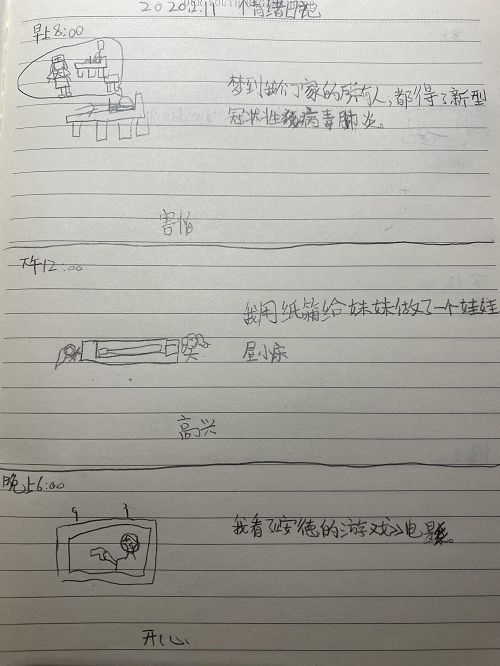 2020.2.11 情绪日记
早上8:00
梦到我们家的所有人,都得了新型
冠状性病毒肺炎。
害怕
下午12:00
我用纸箱给妹妹做了一个娃娃
屋小床
高兴
晚上6:00
我看《安德的游戏》电影。
开心